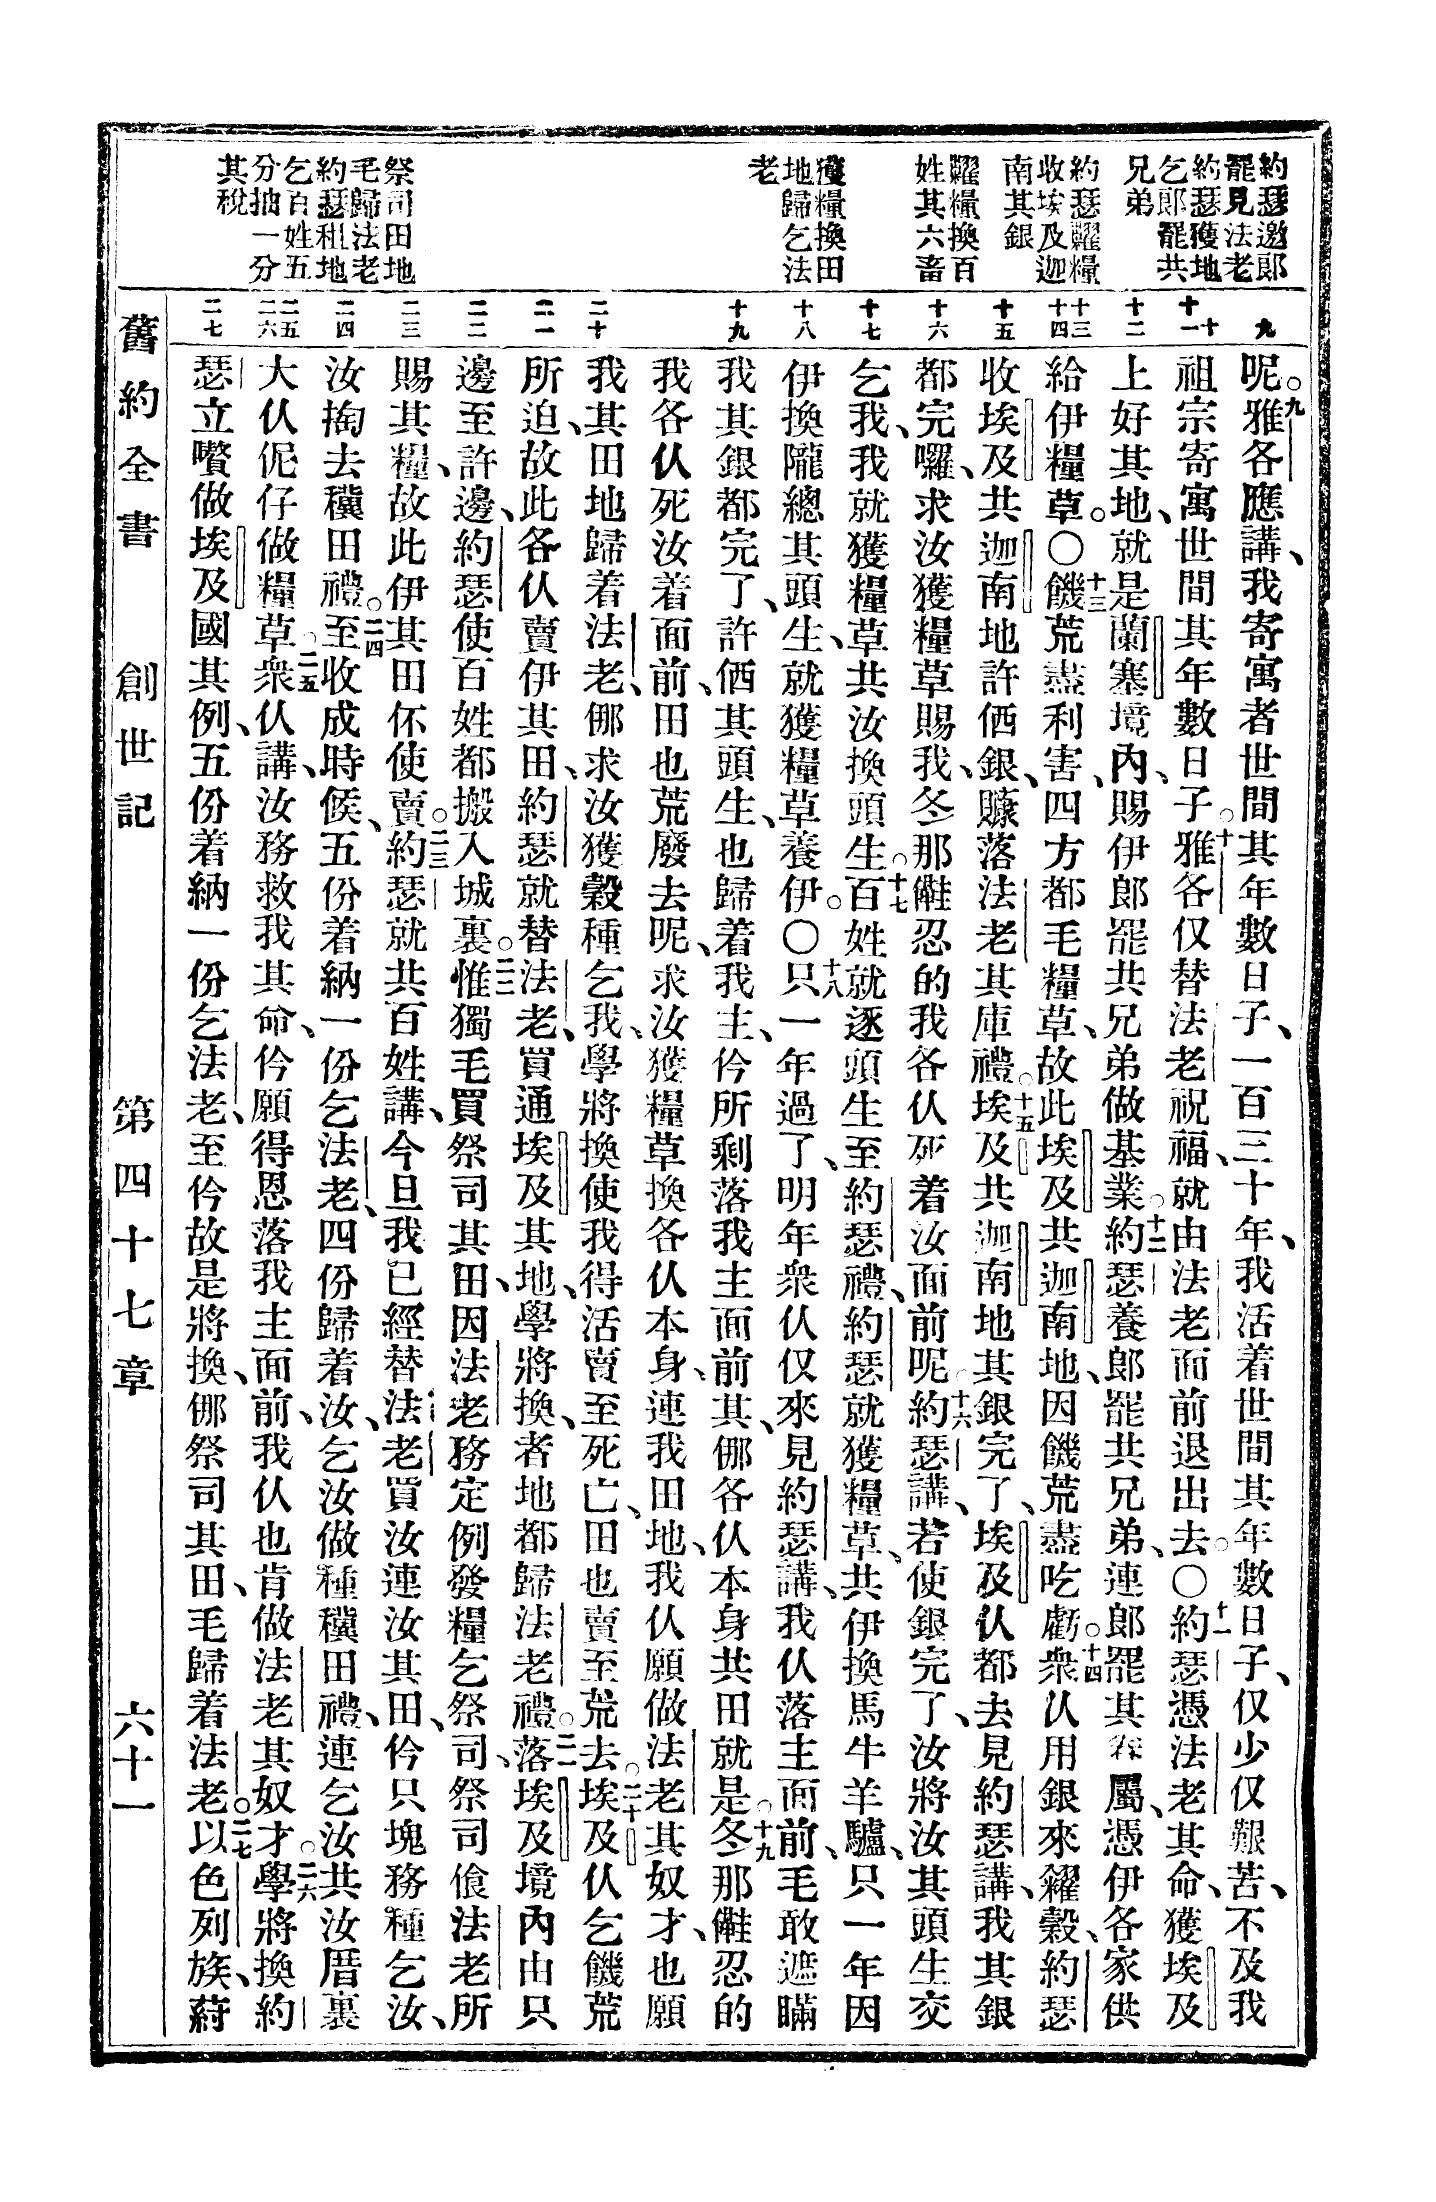 約瑟邀郎
罷見法老
約瑟獲地
乞郎罷共
兄弟
約瑟糶糧
收埃及迦
南其銀
糶糧換百
姓其六畜
獲糧換田
地歸乞法
老
祭司田地
毛歸法老
約瑟租地
乞百姓五
分抽一分
其稅
九
十
十一
十二
十三
十四
十五
十六
十七
十八
十九
二十
二一
二二
二三
二四
二五
二六
二七
呢。九雅各應講、我寄寓者世間其年數日子、一百三十年、我活着世間其年數日子、仅少仅艱苦、不及我
祖宗寄寓世間其年數日子。十雅各仅替法老祝福、就由法老面前退出去。〇十一約瑟憑法老其命、獲埃及
上好其地、就是蘭塞境內、賜伊郎罷共兄弟做基業。十二約瑟養郎罷共兄弟、連郎罷其眷屬、憑伊各家供
給伊糧草。〇十三饑荒盡利害、四方都毛糧草、故此埃及共迦南地、因饑荒盡吃虧。十四衆仈用銀來糴穀、約瑟
收埃及共迦南地許価銀、賺落法老其庫禮。十五埃及共迦南地其銀完了、埃及仈都去見約瑟講、我其銀
都完囉、求汝獲糧草賜我、冬那雠忍的我各仈死着汝面前呢。十六約瑟講、若使銀完了、汝將汝其頭生交
乞我、我就獲糧草共汝換頭生。十七百姓就逐頭生至約瑟禮、約瑟就獲糧草、共伊換馬牛羊驢、只一年因
伊換隴總其頭生、就獲糧草養伊。〇十八只一年過了、明年衆仈仅來見約瑟講、我仈落主面前、毛敢遮瞞
我其銀都完了、許価其頭生、也歸着我主、仱所剩落我主面前其、㑚各仈本身共田就是。十九冬那雠忍的
我各仈死汝着面前、田也荒廢去呢、求汝獲糧草換各仈本身、連我田地、我仈願做法老其奴才、也願
我其田地歸着法老、㑚求汝獲穀種乞我、學將換使我得活、賣至死亡、田也賣至荒去。二十埃及仈乞饑荒
所迫、故此各仈賣伊其田、約瑟就替法老、買通埃及其地、學將換、者地都歸法老禮。二一落埃及境內由只
邊至許邊、約瑟使百姓都搬入城裏。二二惟獨毛買祭司其田、因法老務定例發糧乞祭司、祭司飡法老所
賜其糧、故此伊其田伓使賣。二三約瑟就共百姓講、今旦我已經替法老買汝連汝其田、仱只塊務種乞汝、
汝掏去穓田禮。二四至收成時候、五份着納一份乞法老、四份歸着汝、乞汝做種穓田禮、連乞汝共汝厝裏
大仈伲仔做糧草。二五衆仈講、汝務救我其命、仱願得恩落我主面前、我仈也肯做法老其奴才。二六學將換約
瑟立嚽做埃及國其例、五份着納一份乞法老、至仱故是將換、㑚祭司其田、毛歸着法老。二七以色列族、蒔
舊約全書 創世記 第四十七章 六十一